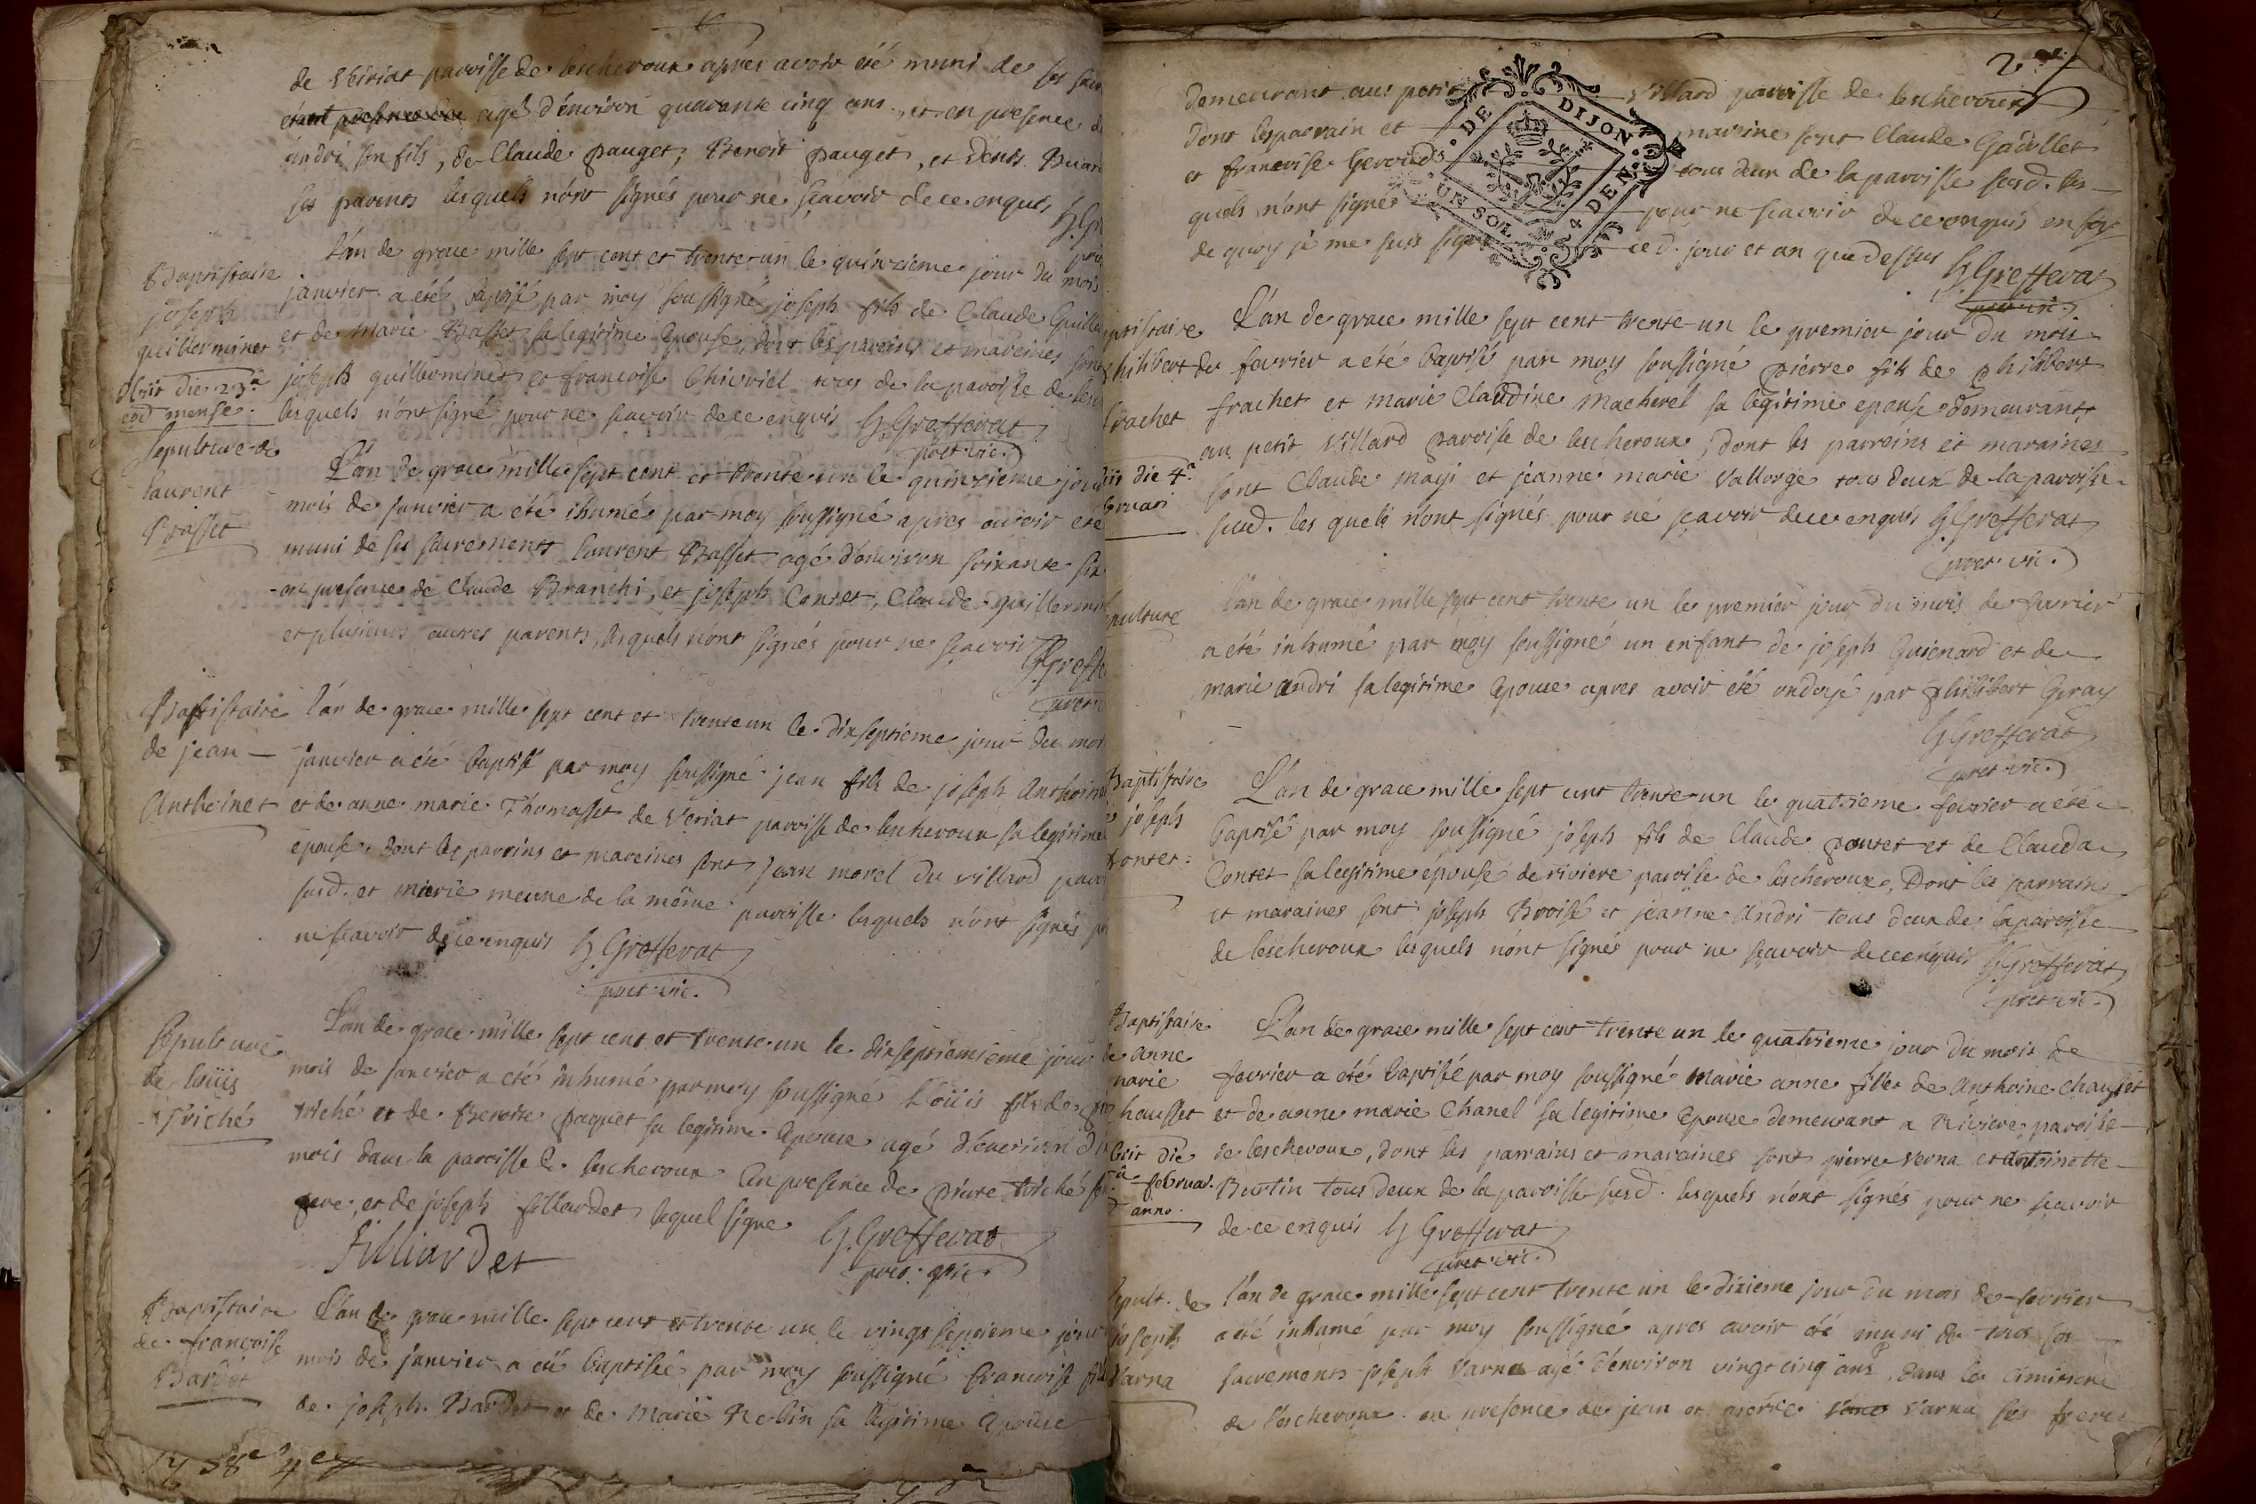 de Veiriat paroisse de lescheroux apres avoir été muni de ses
agé d'environ quarante cinq ans, et en presence de
andri son fils, de Claude pauget, Benoit pauget, et denis
ses parents lesquels n'ont signés pour ne sçavoir de ce enquis
G. Gr
Baptistaire
joseph
guillerminet
obiit die 23a
eod mense.
L'an de grace mille sept cent et trente-un le quinzieme jour du mois
janvier a eté baptisé par moy soussigné joseph fils de Claude Guille
et de marie Basset sa legitime epouse, dont les parains et maraines sont
joseph guillerminet et francoise Chevriel tous de la paroisse de lesc
lesquels n'ont signé pour ne scavoir de ce enquis G. Grefferat
pret. vic.
Sepulture de
laurent
Basset
L'an de grace mille sept cent et trente un le quinzieme jour
mois de janvier a été inhumé par moy soussigné apres avoir eté
muni de ses sacrements laurent Basset agé d'environ soixante six
en presence de Claude Branchi, et joseph Contet, Claude guillermin
et plusieurs autres parents, lesquels n'ont signés pour ne sçavoir G. Greff
Baptistaire
de jean
Anthoinet
l'an de grace mille sept cent et trente un le dixseptieme jour du moi
janvier a eté baptisé par moy soussigné jean fils de joseph Anthoin
et de anne marie Thomasset de Veriat paroisse de lescheroux sa legitime
epouse, dont les parrins et mareines sont jean morel du villard paro
susd. et marie meune de la même paroisse lesquels n'ont signés p
ne scavoir de ce enquis G. Grefferat
pret vic.
Sepulture
de loüis
Triché
L'an de grace mille sept cent et trente un le dixseptiemieme jour
mois de janvier a eté inhumé par moy soussigné Loüis fils de
triché et de Benoite paquet sa legitime epouse agé d'environ d
mois dans la paroisse de lescheroux en presence de pierre triché
pere, et de joseph filliardet lequel signe G. Grefferat
Filliardet
pret. vic.
Baptistaire
de francoise
Bardet
L'an de grace mille sept cent et trente un le vingt septieme jour
mois de janvier a eté baptisée par moy soussigné francoise fil
de joseph Bardet et de Marie Reblin sa legitime epouse
2
DE DIJON
UN SOL 4 DEN
demeurant au petit villard paroisse de lescheroux
dont les parrain et marine sont Claude Gaüillet
et francoise tous deux de la paroisse susd. les
quels n'ont signé pour ne scavoir de ce enquis en foy
de quoy je me suis signé ce d. jour et an que dessus G. Grefferat
pret vic.
aptistaire
philibert
frachet
iit die 4a
bruari
L'an de grace mille sept cent trente un le premier jour du mois
de fevrier a eté baptisé par moy soussigné pierre fils de philibert
frachet et marie Claudine macherel sa legitime epouse demeurants
au petit villard paroisse de lescheroux, dont les parreins et maraines
sont Claude mayi et jeanne marie Vallorge tous deux de la paroisse
susd. les quels n'ont signés pour ne sçavoir de ce enquis G. Grefferat
pret. vic.
pulture
l'an de grace mille sept cent trente un le premier jour du mois de fevrier
a eté inhumé par moy soussigné un enfant de joseph Guienard et de
marie andri sa legitime epouse apres avoir eté ondoyé par philibert Geray
G. Grefferat
pret vic.
Baptistaire
joseph
pontet
L'an de grace mille sept cent trente un le quatrieme fevrier a eté
baptisé par moy soussigné joseph fils de Claude pontet et de Clauda
Contet sa legitime épouse de riviere paroisse de lescheroux, Dont les parrains
et maraines sont joseph Broisé et jeanne Andri tous deux de la paroisse
de lescheroux lesquels n'ont signés pour ne sçavoir de ce enquis G. Grefferat
pret vic.
Baptistaire
de anne
marie
hausset
obiit die
februar.
anno.
L'an de grace mille sept cent trente un le quatrieme jour du mois de
fevrier a eté baptisé par moy soussigné Marie anne fille de Anthoine chausset
et de anne marie Chanel sa legitime Epouze demeurant a Riviere paroisse
de lescheroux, dont les parrains et maraines sont pierre Verna et antoinette
Bertin tous deux de la paroisse susd. lesquels n'ont signés pour ne scavoir
de ce enquis G. Grefferat
pret. vic.
sepult. de
joseph
Varna
l'an de grace mille sept cent trente un le dixieme jour du mois de fevrier
a eté inhumé par moy soussigné apres avoir eté muni de tous ses
sacrements joseph Varna agé d'environ vingt cinq ans, dans le cimitiere
de lescheroux en presence de jean et pierre Varna ses freres